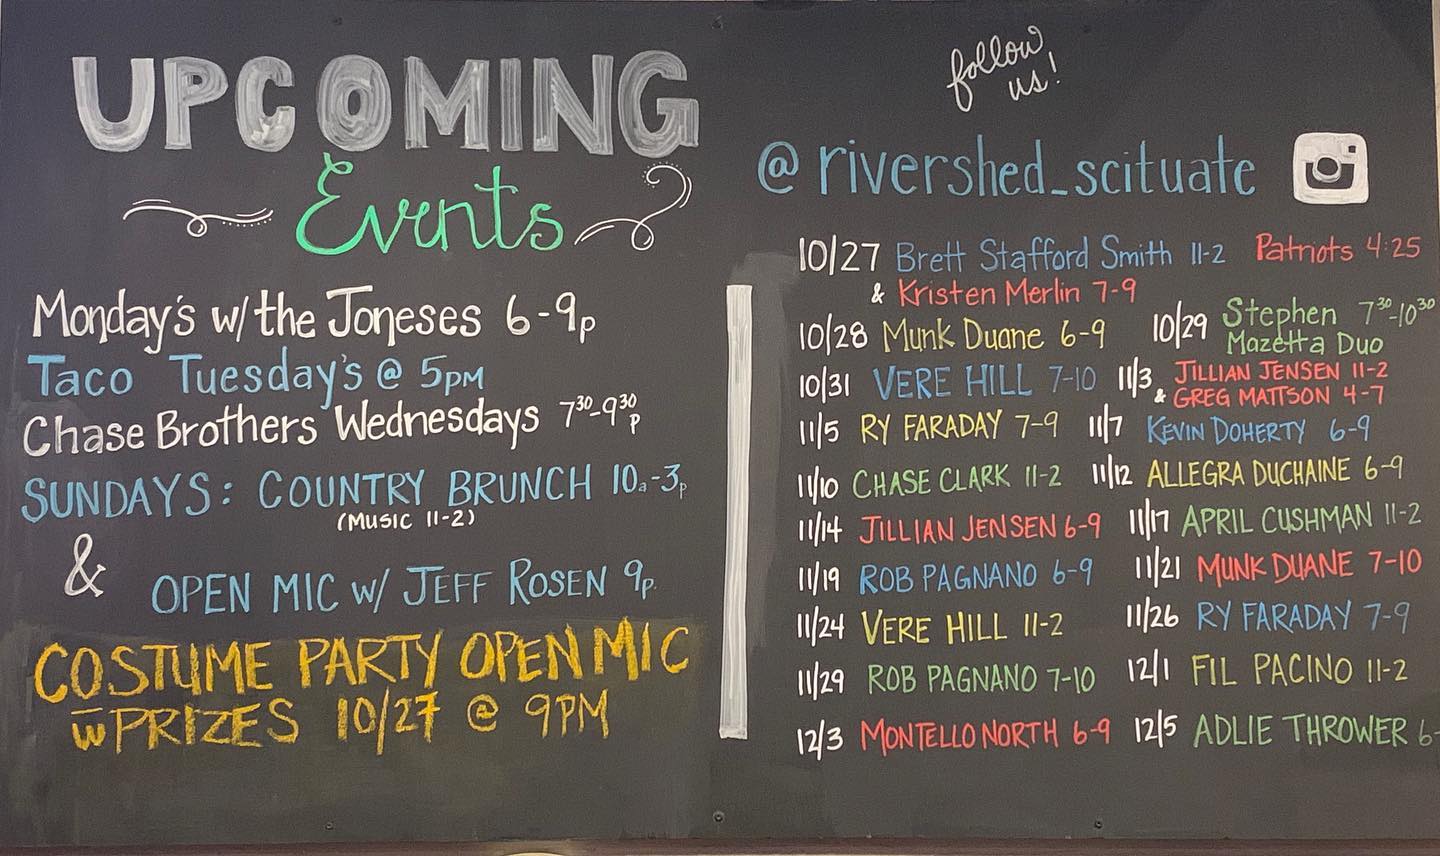 UPCOMING
Events
Monday's w/ the Joneses 6-9p
Taco Tuesday's @ 5PM
Chase Brothers Wednesdays 7³⁰-9³⁰p
SUNDAYS: COUNTRY BRUNCH 10a-3p
(MUSIC 11-2)
&
OPEN MIC w/ JEFF ROSEN 9p.
COSTUME PARTY OPEN MIC
w PRIZES 10/27 @ 9PM
follow
us!
@rivershed_scituate
10/27 Brett Stafford Smith 11-2 Patriots 4:25
& Kristen Merlin 7-9
10/28 Munk Duane 6-9 10/29 Stephen 7³⁰-10³⁰
Mazetta Duo
10/31 VERE HILL 7-10 11/3 JILLIAN JENSEN 11-2
& GREG MATTSON 4-7
11/5 RY FARADAY 7-9 11/7 KEVIN DOHERTY 6-9
11/10 CHASE CLARK 11-2 11/12 ALLEGRA DUCHAINE 6-9
11/14 JILLIAN JENSEN 6-9 11/17 APRIL CUSHMAN 11-2
11/19 ROB PAGNANO 6-9 11/21 MUNK DUANE 7-10
11/24 VERE HILL 11-2 11/26 RY FARADAY 7-9
11/29 ROB PAGNANO 7-10 12/1 FIL PACINO 11-2
12/3 MONTELLO NORTH 6-9 12/5 ADLIE THROWER 6-